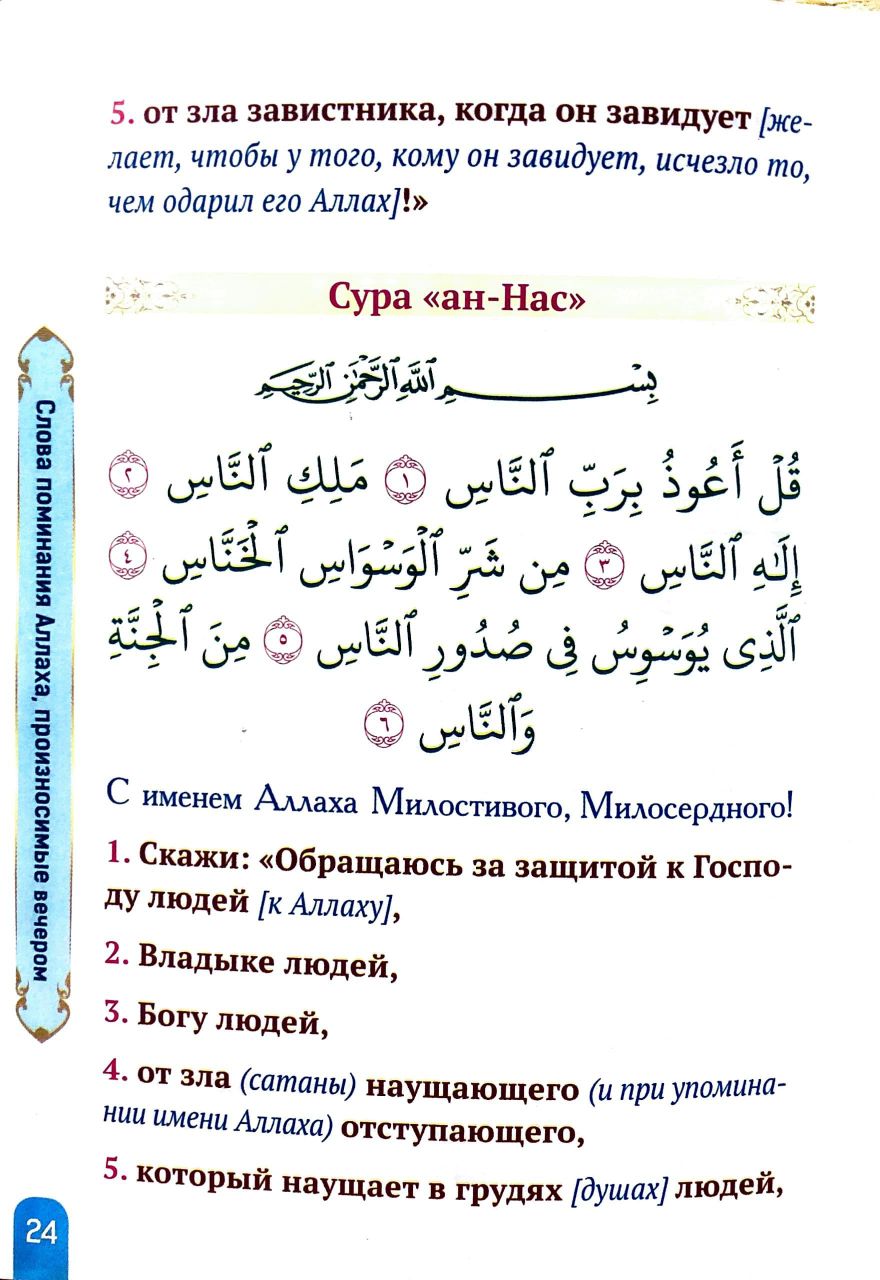 5. от зла завистника, когда он завидует [же-
лает, чтобы у того, кому он завидует, исчезло то,
чем одарил его Аллах]!»
Сура «ан-Нас»
بِسْمِ ٱللَّهِ ٱلرَّحْمَٰنِ ٱلرَّحِيمِ
قُلْ أَعُوذُ بِرَبِّ ٱلنَّاسِ ١ مَلِكِ ٱلنَّاسِ ٢
إِلَٰهِ ٱلنَّاسِ ٣ مِن شَرِّ ٱلْوَسْوَاسِ ٱلْخَنَّاسِ ٤
ٱلَّذِى يُوَسْوِسُ فِى صُدُورِ ٱلنَّاسِ ٥ مِنَ ٱلْجِنَّةِ
وَٱلنَّاسِ ٦
С именем Аллаха Милостивого, Милосердного!
1. Скажи: «Обращаюсь за защитой к Госпо-
ду людей [к Аллаху],
2. Владыке людей,
3. Богу людей,
4. от зла (сатаны) наущающего (и при упомина-
нии имени Аллаха) отступающего,
5. который наущает в грудях [душах] людей,
Слова поминания Аллаха, произносимые вечером
24